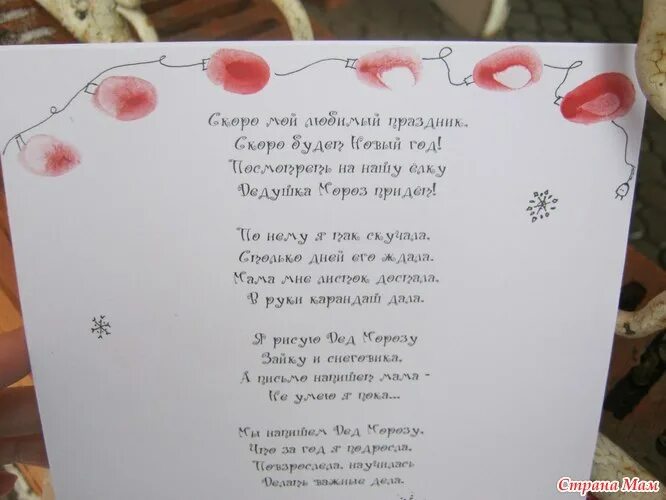 Скоро мой любимый праздник,
Скоро будет Новый год!
Посмотреть на нашу ёлку
Дедушка Мороз придёт!
По нему я так скучала,
Столько дней его ждала.
Мама мне листок достала,
В руки карандаш дала.
Я рисую Дед Морозу
Зайку и снеговика,
А письмо напишет мама -
Не умею я пока...
Мы напишем Дед Морозу,
Что за год я подросла,
Повзрослела, научилась
Делать важные дела.
Страна Мам